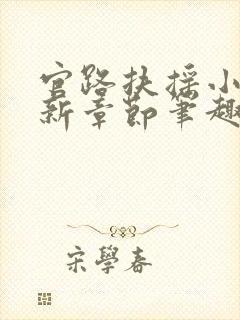 官路扶摇小
新章节笔趣
宋學春